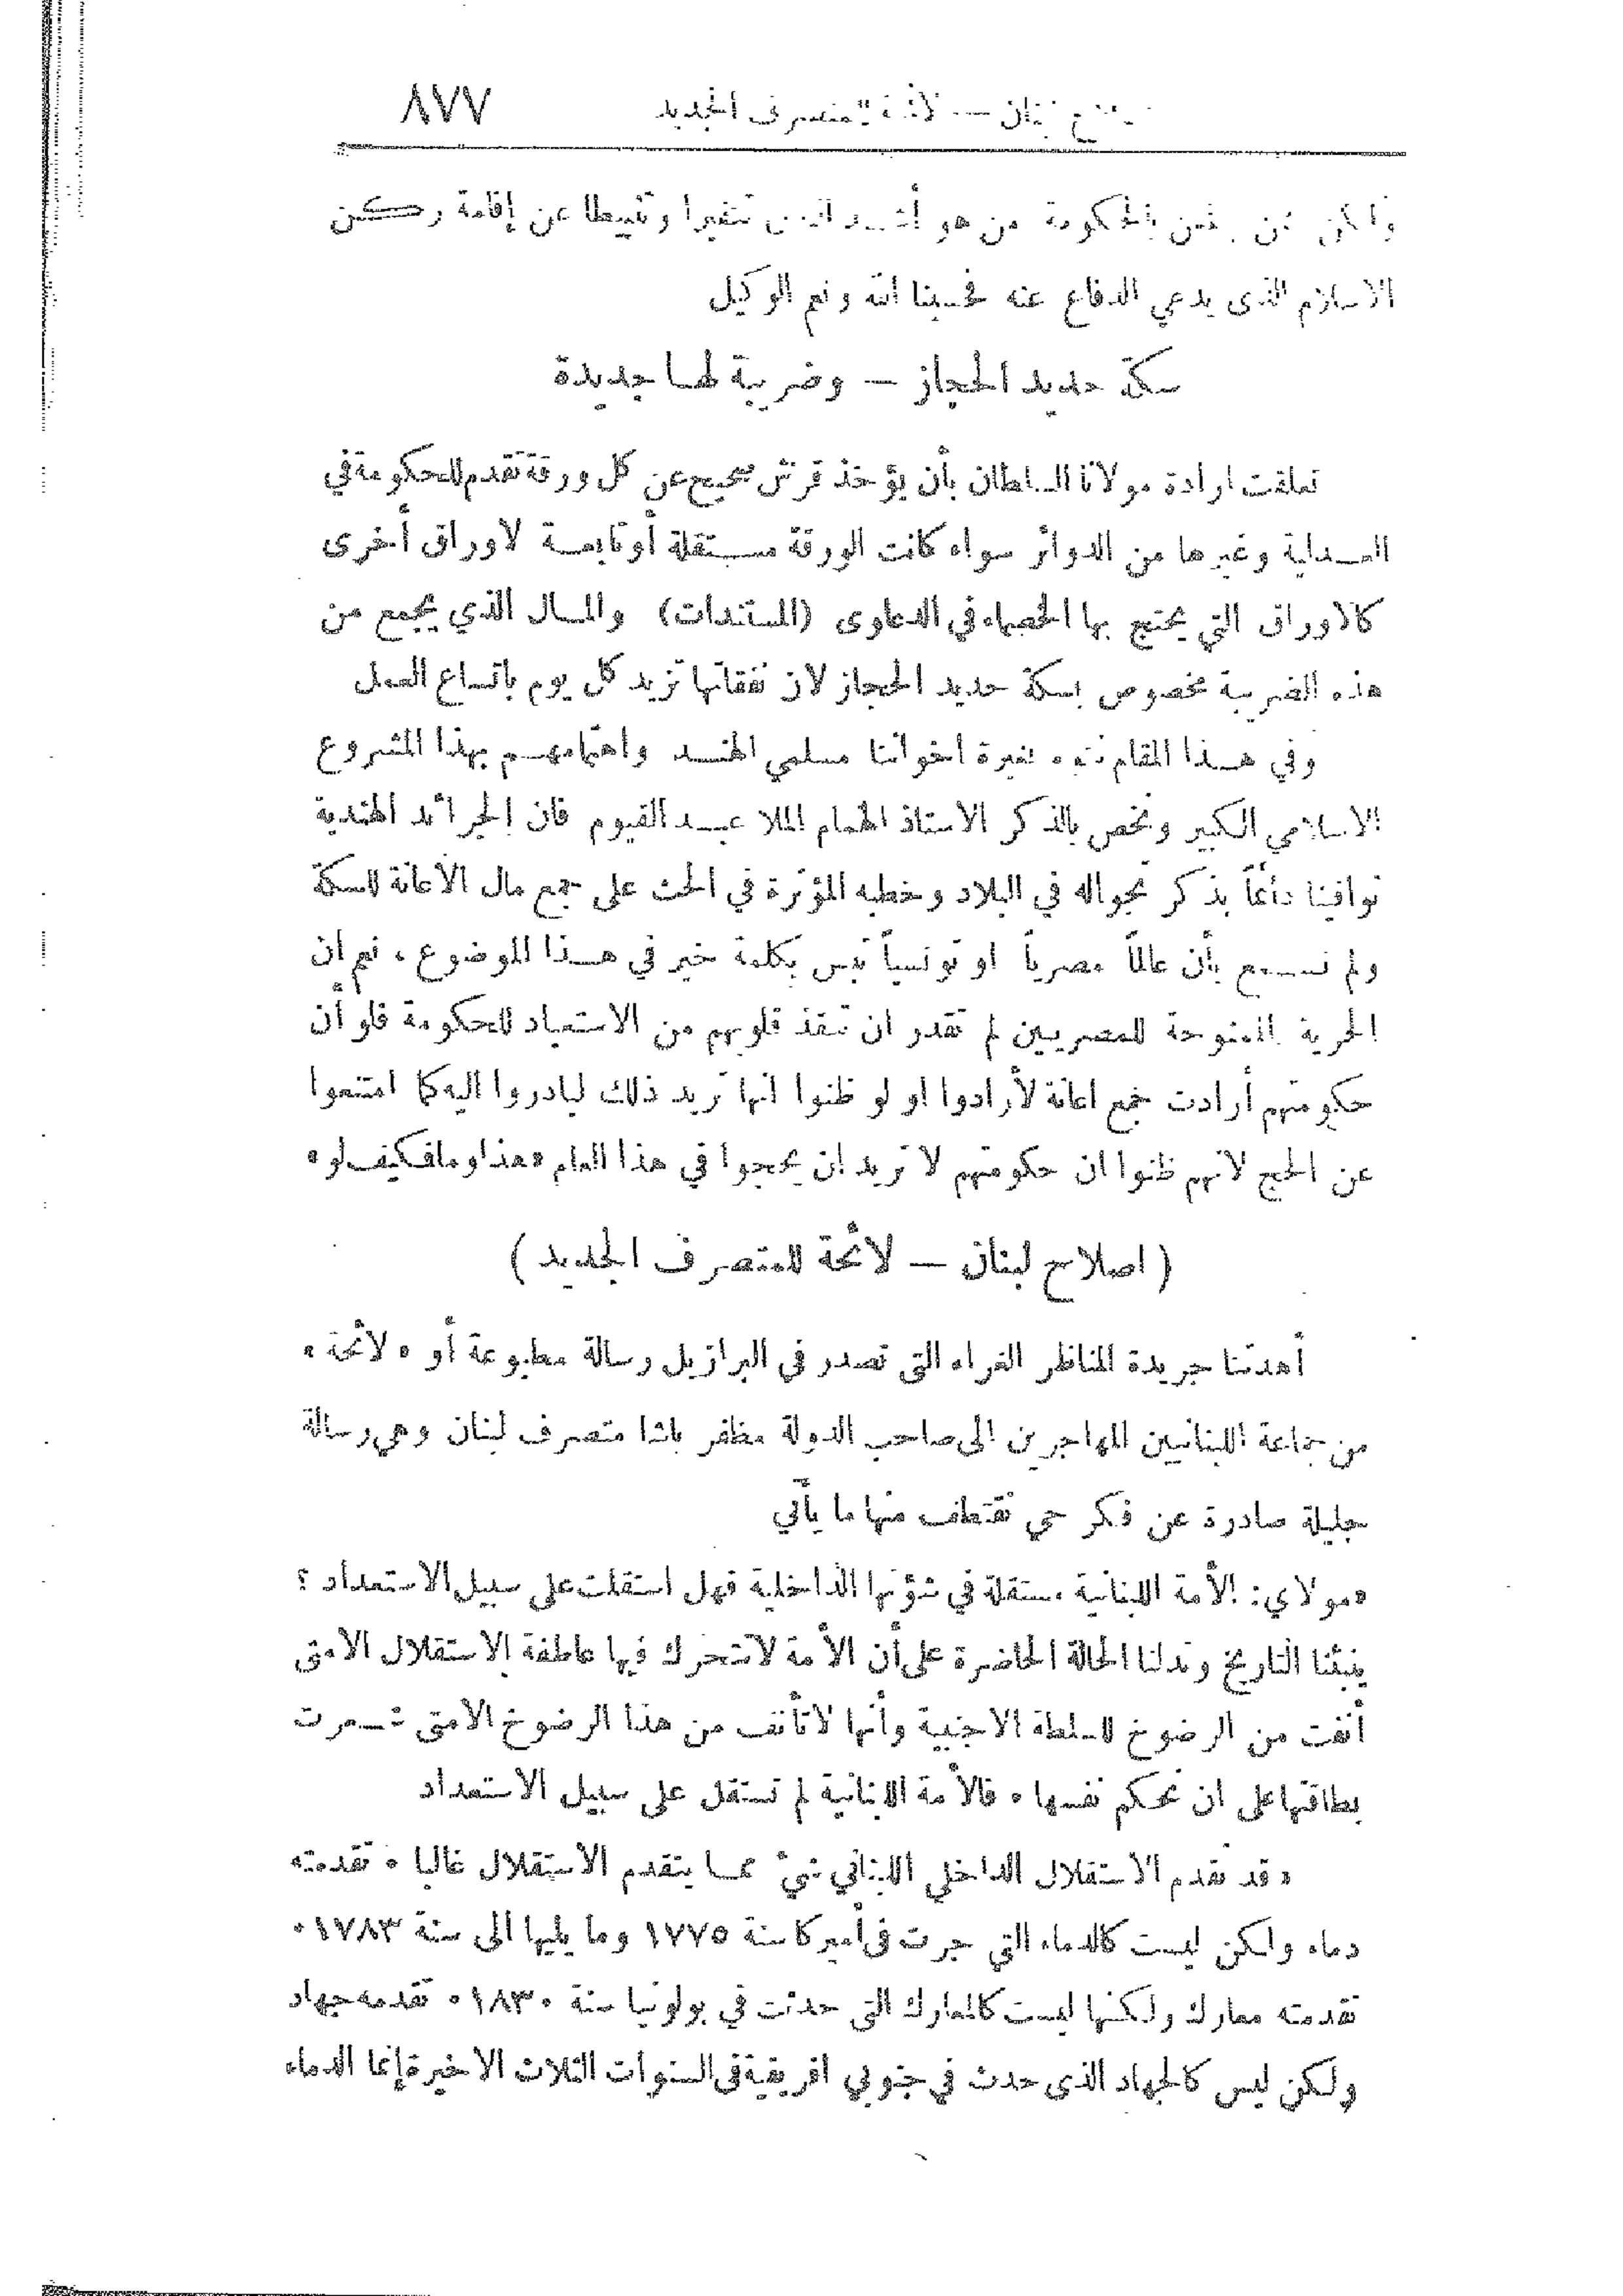 لبنان — لائحة المتصرف الجديد ٨٧٧
بالحكومة من هو أشد الناس تنفيرا وتثبيطا عن إقامة ركن
الاسلام الذى يدعي الدفاع عنه فحسبنا الله ونعم الوكيل
سكة حديد الحجاز — وضريبة لها جديدة
تعلقت ارادة مولانا السلطان بأن يؤخذ قرش صحيح عن كل ورقة تقدم للحكومة في
العدلية وغيرها من الدوائر سواء كانت الورقة مستقلة أو تابعة لاوراق أخرى
كالاوراق التي يحتج بها الخصماء في الدعاوى (المستندات) والمال الذي يجمع من
هذه الضريبة مخصوص بسكة حديد الحجاز لان نفقاتها تزيد كل يوم باتساع العمل
وفي هذا المقام ننوه بغيرة اخواننا مسلمي الهند واهتمامهم بهذا المشروع
الاسلامي الكبير ونخص بالذكر الاستاذ الهمام الملا عبد القيوم فان الجرائد الهندية
توافينا دائماً بذكر تجواله في البلاد وخطبه المؤثرة في الحث على جمع مال الاعانة للسكة
ولم نسمع بأن عالماً مصرياً او تونسياً نبس بكلمة خير في هذا الموضوع ، نعم ان
الحرية الممنوحة للمصريين لم تقدر ان تنقذ قلوبهم من الاستعباد للحكومة فلو أن
حكومتهم أرادت جمع اعانة لأرادوا او لو ظنوا انها تريد ذلك لبادروا اليه كما امتنعوا
عن الحج لانهم ظنوا ان حكومتهم لا تريد ان يحجوا في هذا العام «هذا وما فكيف لو»
( اصلاح لبنان — لائحة للمتصرف الجديد )
أهدتنا جريدة المناظر الغراء التى تصدر في البرازيل رسالة مطبوعة أو «لائحة»
من جماعة اللبنانيين المهاجرين الى صاحب الدولة مظفر باشا متصرف لبنان وهي رسالة
جليلة صادرة عن فكر حي نقتطف منها ما يأتي
«مولاي: الأمة اللبنانية مستقلة في شؤنها الداخلية فهل استقلت على سبيل الاستعداد ؟
ينبئنا التاريخ وتدلنا الحالة الحاضرة على أن الأمة لا تتحرك فيها عاطفة الاستقلال الا متى
أنفت من الرضوخ للسلطة الاجنبية وأنها لا تأنف من هذا الرضوخ الا متى شعرت
بطاقتها على ان تحكم نفسها ٠ فالأمة اللبنانية لم تستقل على سبيل الاستعداد
«قد تقدم الاستقلال الداخلي اللبناني شيء مما يتقدم الاستقلال غالبا ٠ تقدمته
دماء ولكن ليست كالدماء التي جرت في أميركا سنة ١٧٧٥ وما يليها الى سنة ١٧٨٣ ٠
تقدمته معارك ولكنها ليست كالمعارك التى حدثت في بولونيا سنة ١٨٣٠ ٠ تقدمه جهاد
ولكن ليس كالجهاد الذى حدث في جنوبي افريقية فى السنوات الثلاث الاخيرة إنما الدماء